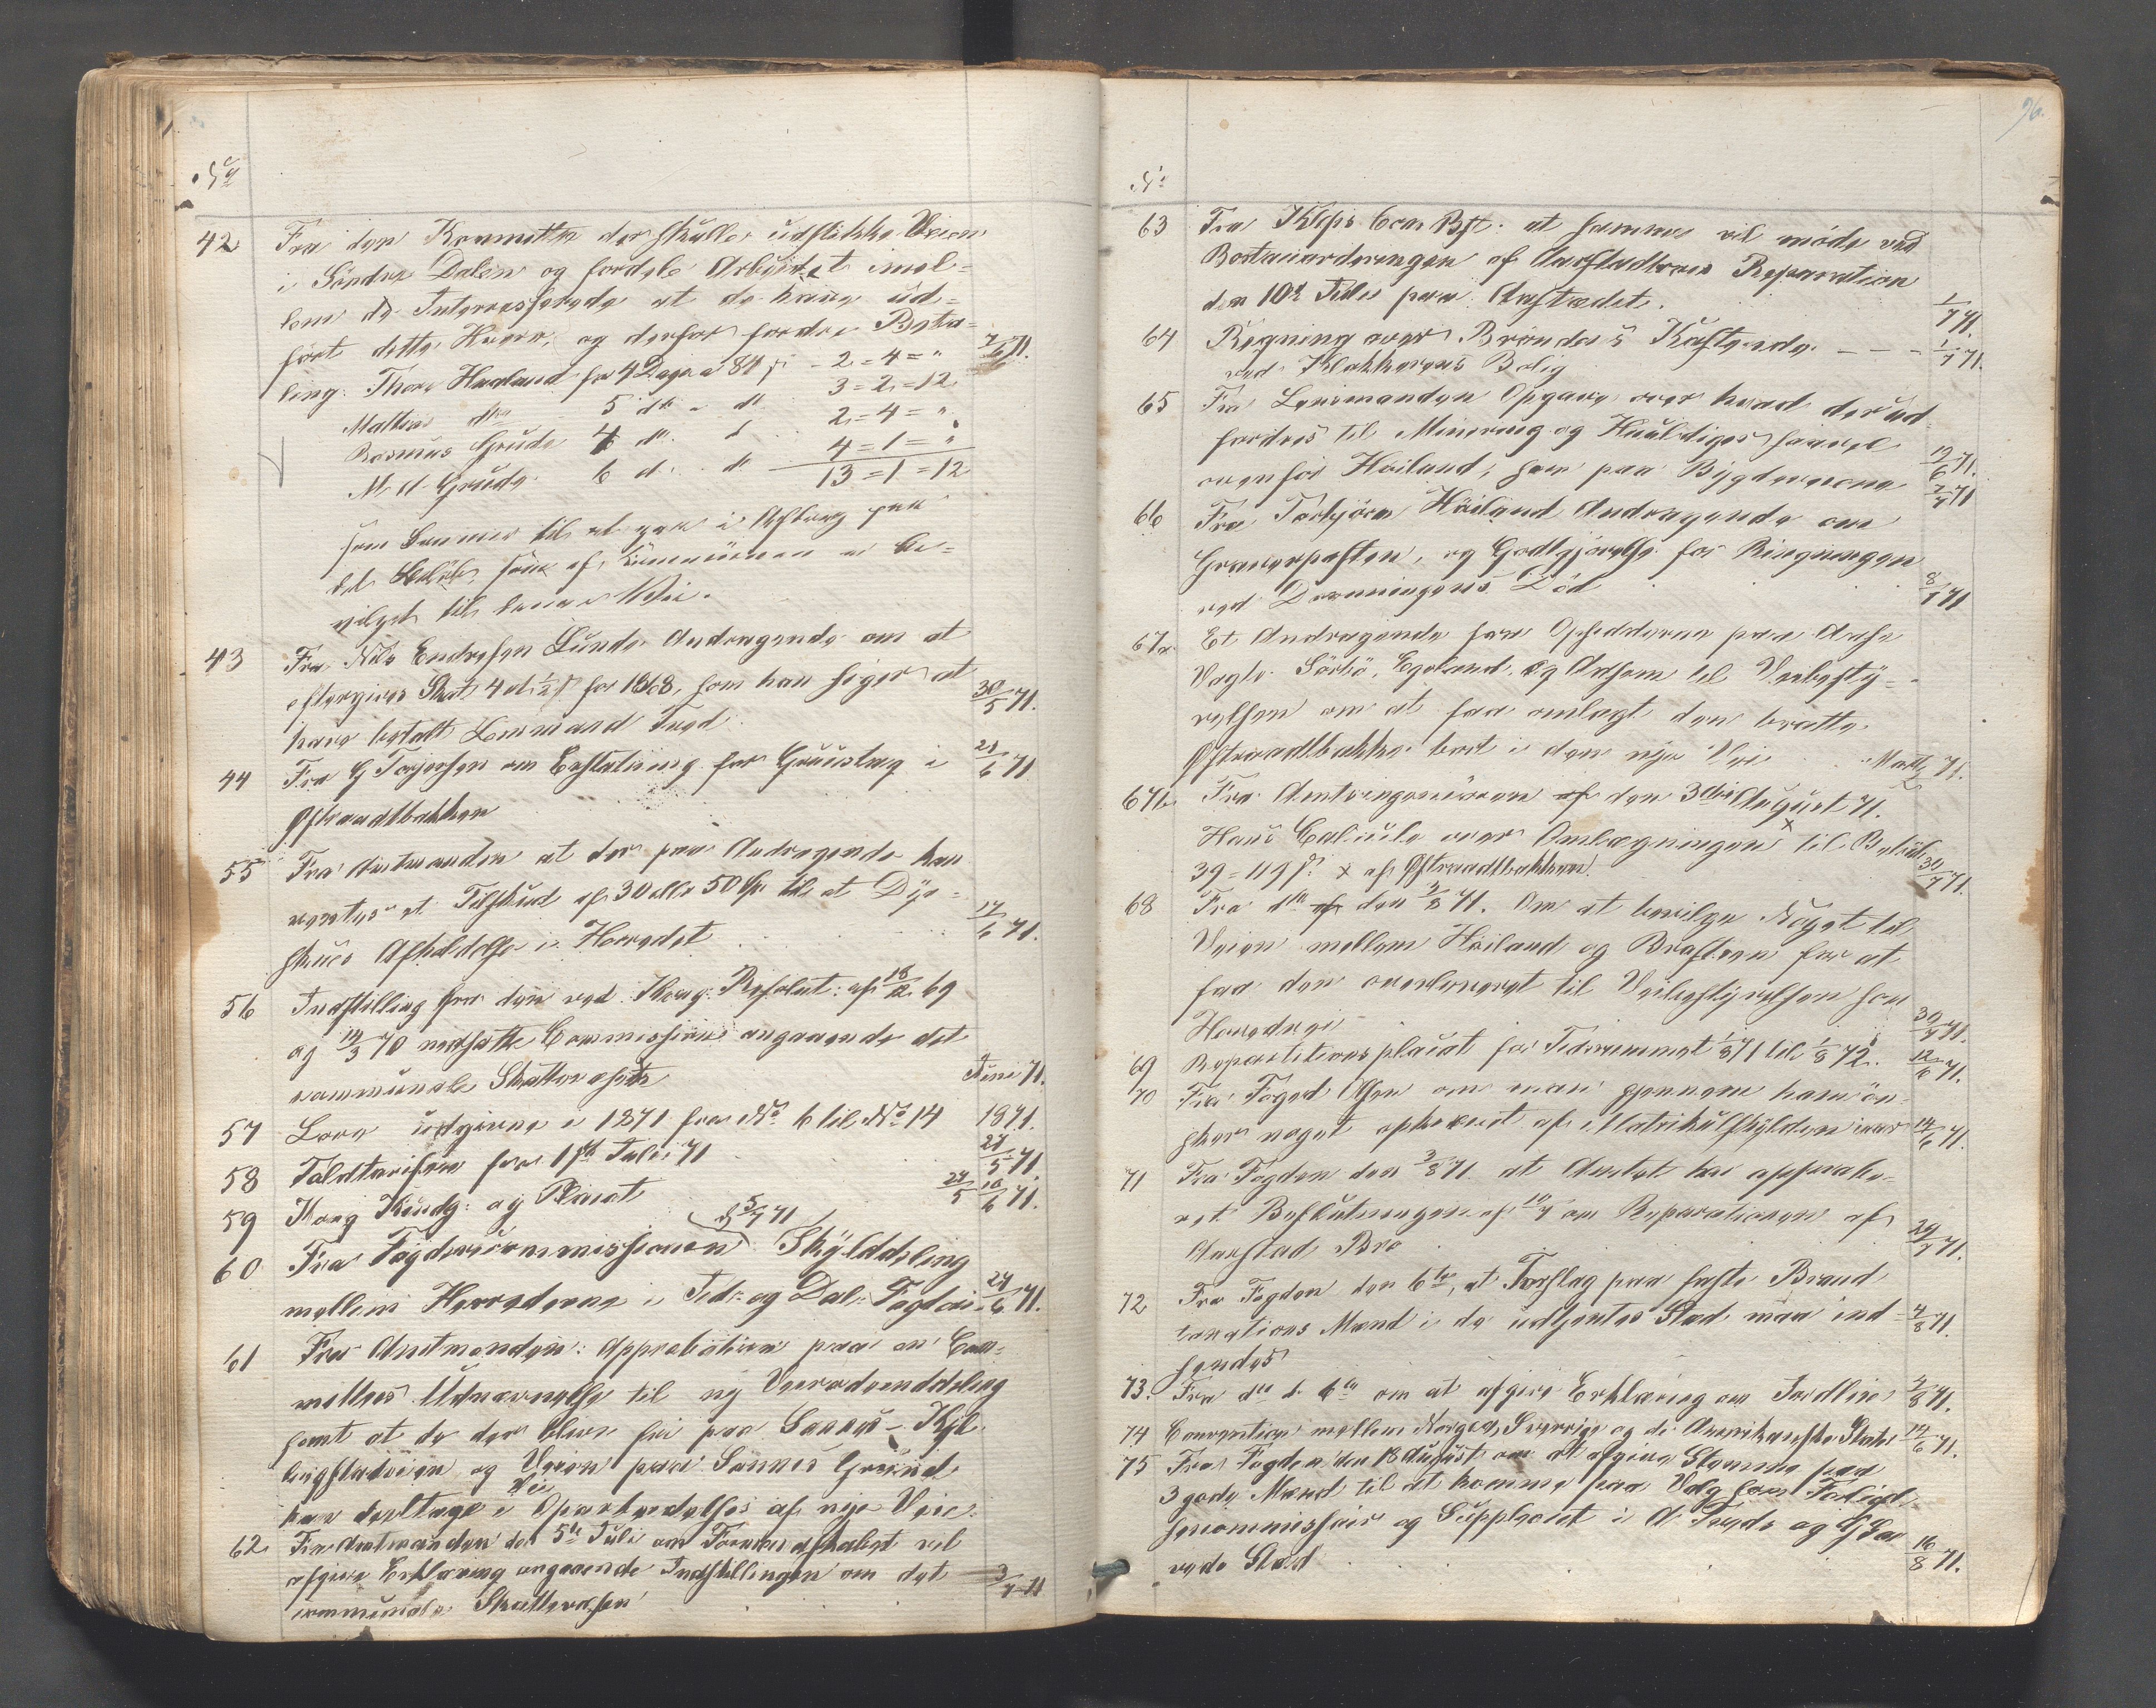 No
42 Fra den Kommitte der skulle udstikke Veien
i Söndre Dalen og fordele Arbeidet imel=
lem de Interesserede at de have ud=
ført dette Hverv, og derfor fordre Beta=
ling. Thore Haaland for 4 Dage a 84 ß - 2 = 4 = " 7/6 71.
Mathias do 5 do - do 3 = 2 = 12
Rasmus Grude 4 do. d 2 = 4 = "
M. A. Grude 6 d. do 4 = 1 = "
13 = 1 = 12
som kommer til at gaa i Afdrag paa
det Beløb, som af Kommunen er be=
vilget til denne Vei.
43 Fra Nils Endresen Lunde Andragende om at
eftergives Skat 4 ort ½ ß for 1868, som han siger at 30/5 71.
have betalt Lensmand Tred
44 Fra G Torjersen om Erstatning for Gruustag i 21/6 71.
Østraadtbakken
55 Fra Amtmanden at der paa Andragende kan
ventes et Tilskud af 30 eller 50 Spd til at Dyr=
skues Afholdelse i Herredet 17/6 71.
56 Indstilling fra den ved Kong: Resolut: af 18/12 69
og 14/3 70 nedsatte Commission angaaende det
communale Skattevæsen Juni 71.
57 Love udgivne i 1871 fra No 6 til No 14 1871.
58 Toldtarifen fra 1ste Juli 71 27/5 71
59 Kong Kundg: og Placat 24/5 10/6 71.
60 Fra Fogdericommissionen d 5/7 71 Skylddeling
mellem Herrederne i Jed: og Dal: Fogderi 24/6 71.
61 Fra Amtmanden: Approbation paa en Com=
mittees Udnævnelse til ny Veirodeinddeling
samt at de der blive fri paa Sannes - Kjl
lingstadveien og Veien paa Sannes Grund
kan deeltage i Oparbeidelse af nye Veie.
Vei
62 Fra Amtmanden den 5te Juli om Formandskabet vil
afgive Erklæring angaaende Indstillingen om det 3/7 71
communale Skattevæsen
96.
No
63 Fra Kleps Com Bst. at samme vil møde ved
Bortauctioneringen af Aarstadbroes Reparation
den 10de Juli paa Aastædet. 1/7 71.
64 Regning over Brøndens Kastende - - - 1/7 71.
ved Klokkerens Bolig
65 Fra Lensmanden Opgave over hvad der ud
fordres til Minering og Huuldiger saavel
ovenfor Høiland, som paa Bygdeveiene 19/6 71.
66 Fra Torbjörn Höiland Andragende om 7/7 71
Graverposten, og Godtgjørelse for Ringningen
ved Dronningens Död 8/7 71
67a. Et Andragende fra Opsidderne paa Aase
Vagle Sörbö, Egeland, og Aasem til Veibesty=
relsen om at faa omlagt den bratte
Østraadtbakke bort i den nye Vei Marts 71.
67b. Fra Amtsingeniøren af den 3die August 71.
Hans Calcule over Omlægningen x til Beløb
39 = 119 ß. x af Østraadtbakken 31/7 71.
68 Fra do af den 3/8 71. Om at bevilge Noget til
Veien mellem Höiland og Brasteen for at
faa den overleveret til Veibestyrelsen som
Hovedvei 30/7 71.
69 Repartitionsplacat for Tidsrummet 1/8 71 til 1/8 72. 12/6 71.
70 Fra Foged Olsen om man gjennem ham ön=
sker noget optrævet af Matrikulskylden iaar 14/6 71.
71 Fra Fogden den 3/8 71 at Amtet har approbe=
ret Beslutningen af 10/7 om Reparationen af
Aarstad Bro 29/7 71.
72 Fra Fogden den 6te, at Forslag paa faste Brand
taxations Mænd i de udtjentes Sted maa ind 4/8 71.
sendes
73. Fra do d. 6te om at afgive Erklæring om Jordlov 4/8 71.
74 Convention mellem Norge, Sverrige og de Amerikanske Stater 14/6 71.
75 Fra Fogden den 18 August om at afgive Stemme paa
3 gode Mænd til at komme paa Valg som Forligel
sescommissair og Suppleant i A Trods og G Gra
veds Sted 16/8 71.